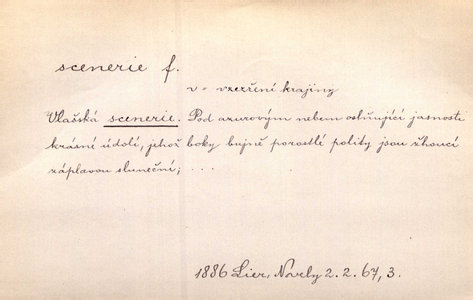 scenerie f.
v = vzezření krajiny
Vlašská scenerie. Pod azurovým nebem oslňující jasnosti
krásné údolí, jehož boky bujně porostlé polity jsou žhoucí
záplavou sluneční; . . .
1886 Lier, Novely 2. 2. 67, 3.